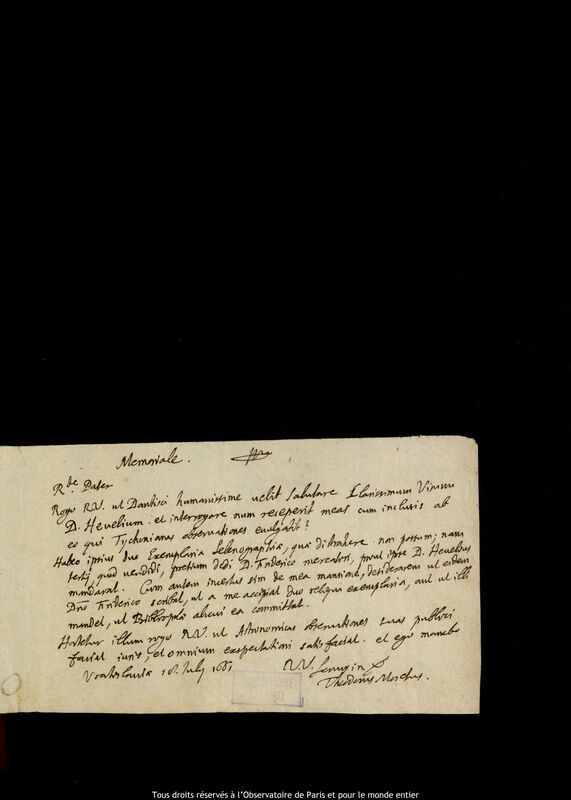 Memoriale.
R.de Pater
Rogo R.V. ut Dantisci humanissime velit salutare Clarissimum Virum
D. Hevelium. et interrogare num receperit meas cum inclusis ab
eo qui Tychonianas observationes evulgavit?
Habeo ipsius duo Exemplaria Selenographiæ, quæ distrahere non possum; nam
tertij, quod vendidi, pretium dedi D. Friderico mercatori, prout ipse D. Hevelius
mandarat. Cum autem incertus sim de mea mansione, desiderarem ut eidem
Dno Friderico scribat, ut a me accipiat duo reliqua exemplaria, aut ut illi
mandet, ut Bibliopolæ alicui ea committat.
Hortetur illum rogo R.V. ut Astronomicas observationes suas publici
faciat iuris, et omnium exspectationi satisfaciat. et ego manebo
Vratislaviæ 18. July 1661 R.V. Servus in Xo
Theodorus Moretus.
Tous droits réservés à l'Observatoire de Paris et pour le monde entier